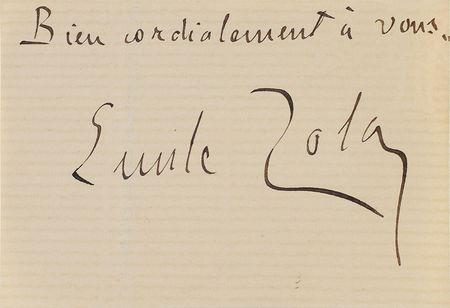 Bien cordialement à vous.
Emile Zola